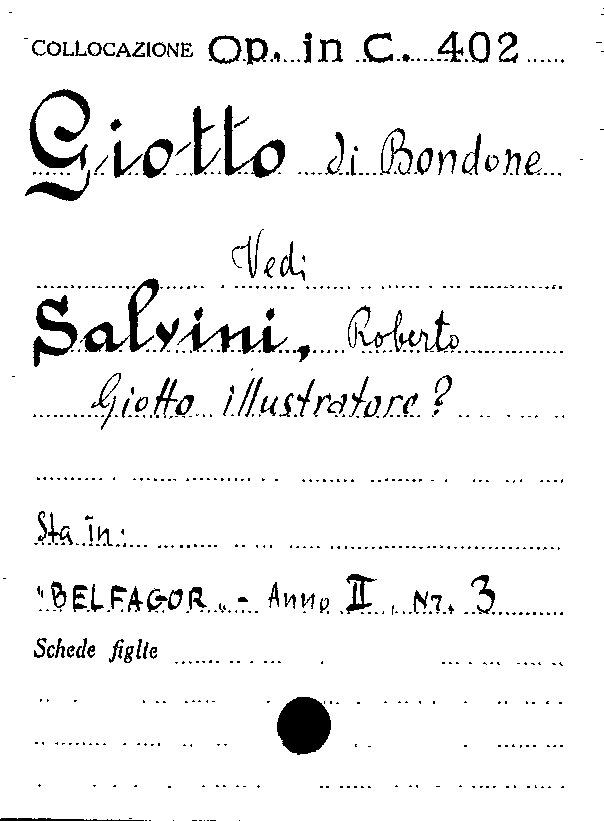 COLLOCAZIONE Op. in C. 402
Giotto di Bondone
Vedi
Salvini, Roberto
Giotto illustratore?
Sta in:
"BELFAGOR„ - Anno II, Nr. 3
Schede figlie